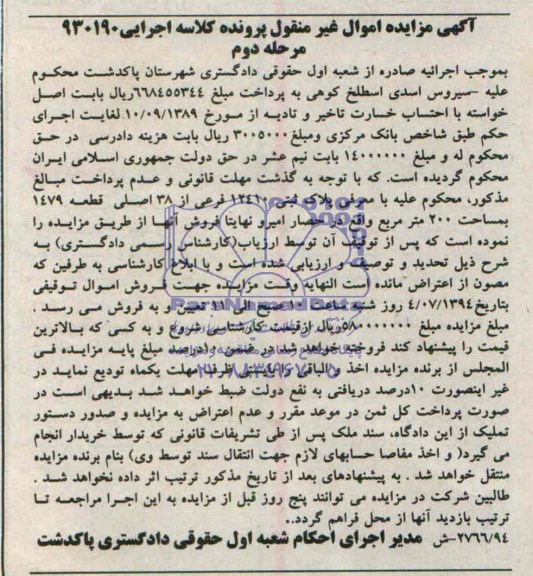 آگهی مزایده اموال غیر منقول پرونده کلاسه اجرایی۹۳۰۱۹۰
مرحله دوم
بموجب اجرائیه صادره از شعبه اول حقوقی دادگستری شهرستان پاکدشت محکوم
علیه -سیروس اسدی اسطلخ کوهی به پرداخت مبلغ ۶۶۸۴۵۵۳۴۴ریال بابت اصل
خواسته با احتساب خسارت تاخیر و تادیه از مورخ ۱۰/۰۹/۱۳۸۹ لغایت اجرای
حکم طبق شاخص بانک مرکزی ومبلغ۳۰۰۵۰۰۰ ریال بابت هزینه دادرسی در حق
محکوم له و مبلغ ۱۴۰۰۰۰۰۰ بابت نیم عشر در حق دولت جمهوری اسلامی ایران
محکوم گردیده است. که با توجه به گذشت مهلت قانونی و عدم پرداخت مبالغ
مذکور، محکوم علیه با معرفی پلاک ثبتی ۱۲۴۱۰ فرعی از ۳۸ اصلی قطعه ۱۴۷۹
بمساحت ۲۰۰ متر مربع واقع در حصار امیرو نهایتا فروش آنها از طریق مزایده را
نموده است که پس از توقیف آن توسط ارزیاب(کارشناس رسمی دادگستری) به
شرح ذیل تحدید و توصیف و ارزیابی شده است و با ابلاغ کارشناسی به طرفین که
مصون از اعتراض مانده است النهایه وقت مزایده جهت فروش اموال توقیفی
بتاریخ۴/۰۷/۱۳۹۴ روز شنبه ساعت ۱۰ صبح الی ۱۱ تعیین و به فروش می رسد .
مبلغ مزایده مبلغ ۵۸۰۰۰۰۰۰۰ریال ازقیمت کارشناسی شروع و به کسی که بالاترین
قیمت را پیشنهاد کند فروخته خواهد شد در ضمن ۱۰درصد مبلغ پایه مزایده فی
المجلس از برنده مزایده اخذ و الباقی را بایستی ظرف مهلت یکماه تودیع نماید در
غیر اینصورت ۱۰درصد دریافتی به نفع دولت ضبط خواهد شد بدیهی است در
صورت پرداخت کل ثمن در موعد مقرر و عدم اعتراض به مزایده و صدور دستور
تملیک از این دادگاه، سند ملک پس از طی تشریفات قانونی که توسط خریدار انجام
می گیرد( و اخذ مفاصا حسابهای لازم جهت انتقال سند توسط وی) بنام برنده مزایده
منتقل خواهد شد . به پیشنهادهای بعد از تاریخ مذکور ترتیب اثر داده نخواهد شد .
طالبین شرکت در مزایده می توانند پنج روز قبل از مزایده به این اجرا مراجعه تا
ترتیب بازدید آنها از محل فراهم گردد..
۲۷۶۶/۹۴-ش مدیر اجرای احکام شعبه اول حقوقی دادگستری پاکدشت
ParsNamadData